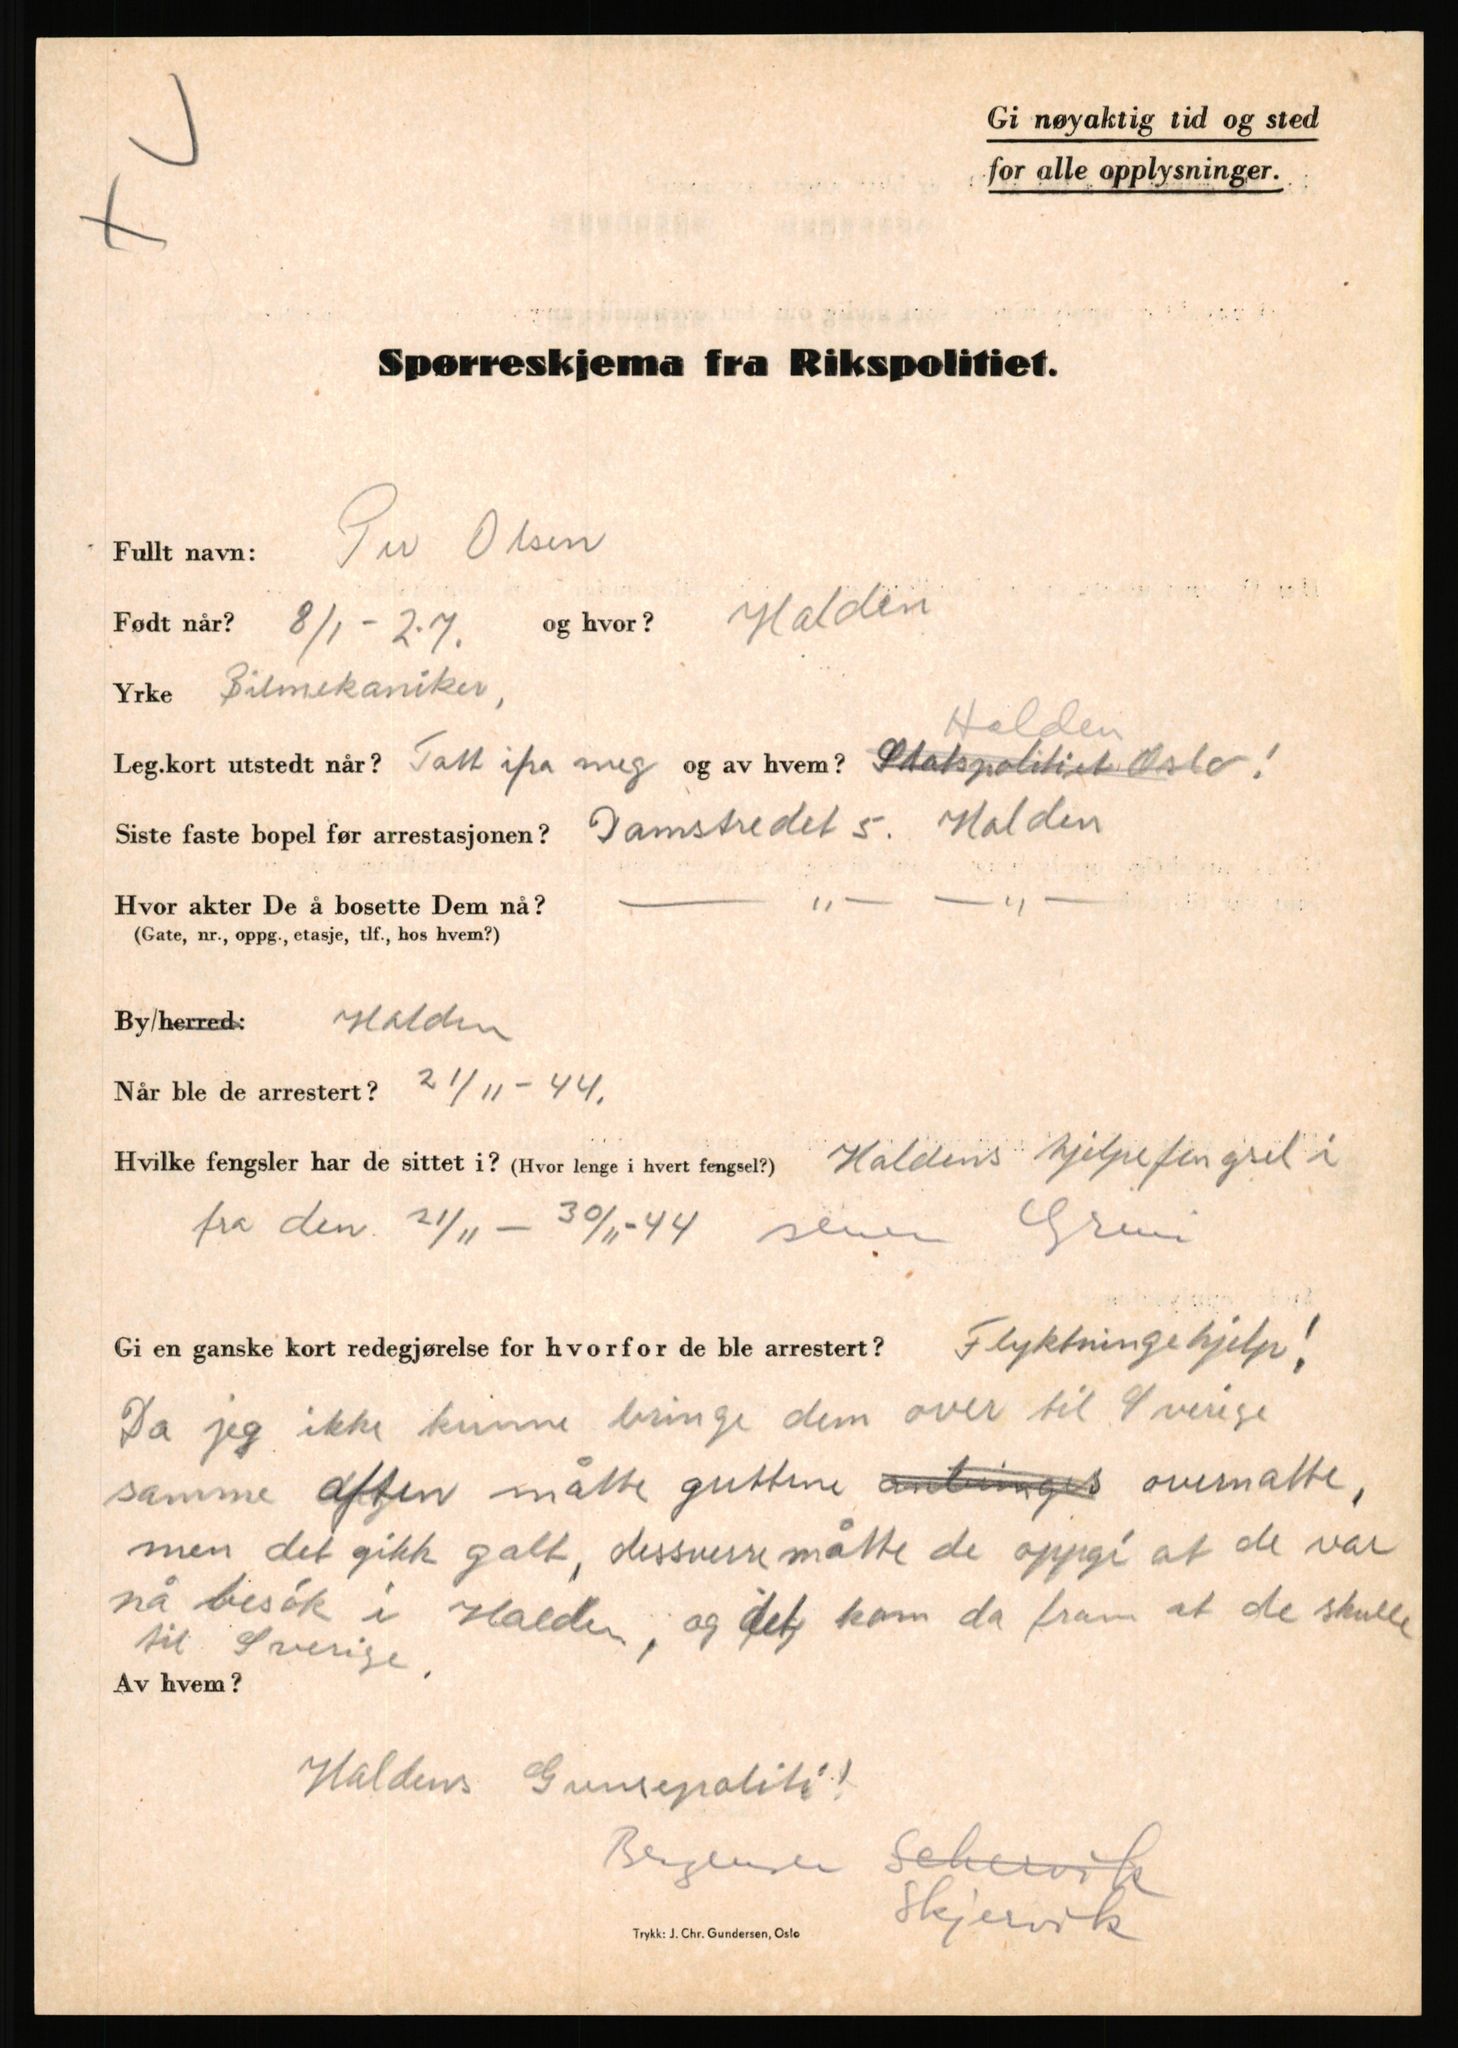 Gi nøyaktig tid og sted
for alle opplysninger.
Spørreskjema fra Rikspolitiet.
Fullt navn: Per Olsen
Født når? 8/1 - 27. og hvor? Halden
Yrke Bilmekaniker,
Halden
Leg.kort utstedt når? Tatt ifra meg og av hvem? Statspolitiet Oslo!
Siste faste bopel før arrestasjonen? Damstredet 5. Halden
Hvor akter De å bosette Dem nå? — „ — — „ —
(Gate, nr., oppg., etasje, tlf., hos hvem?)
By/herred: Halden
Når ble de arrestert? 21/11 - 44.
Hvilke fengsler har de sittet i? (Hvor lenge i hvert fengsel?) Haldens hjelpefengsel i
fra den 21/11 — 30/11-44 senere Grini
Gi en ganske kort redegjørelse for hvorfor de ble arrestert? Flyktningehjelp!
Da jeg ikke kunne bringe dem over til Sverige
samme aften måtte guttene overnatte,
men det gikk galt, dessverre måtte de oppgi at de var
på besøk i Halden, og det kom da fram at de skulle
til Sverige.
Av hvem?
Haldens Grensepoliti!
Bergensen Schervik
Skjervik
Trykk: J. Chr. Gundersen, Oslo